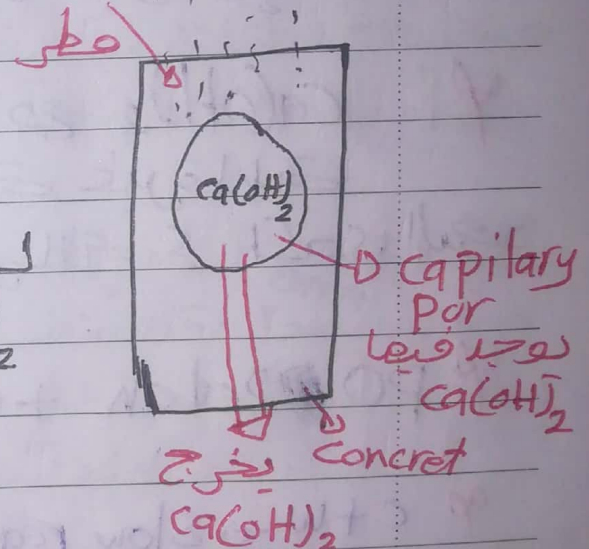 مطر
Ca(OH)2
Capilary
Por
يوجد فيها
Ca(OH)2
Concret
يخرج
Ca(OH)2